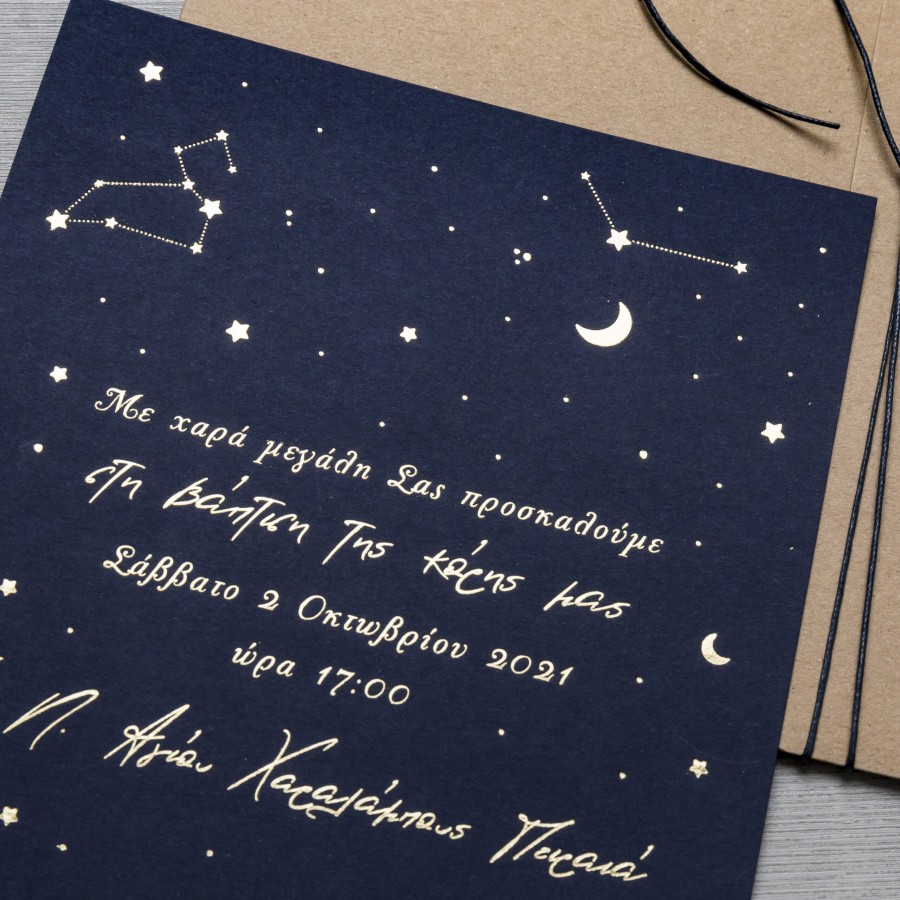 Με χαρά μεγάλη Σας προσκαλούμε
στη βάπτιση της κόρης μας
Σάββατο 2 Οκτωβρίου 2021
ώρα 17:00
Ν. Αγίου Χαραλάμπους Πευκακιά